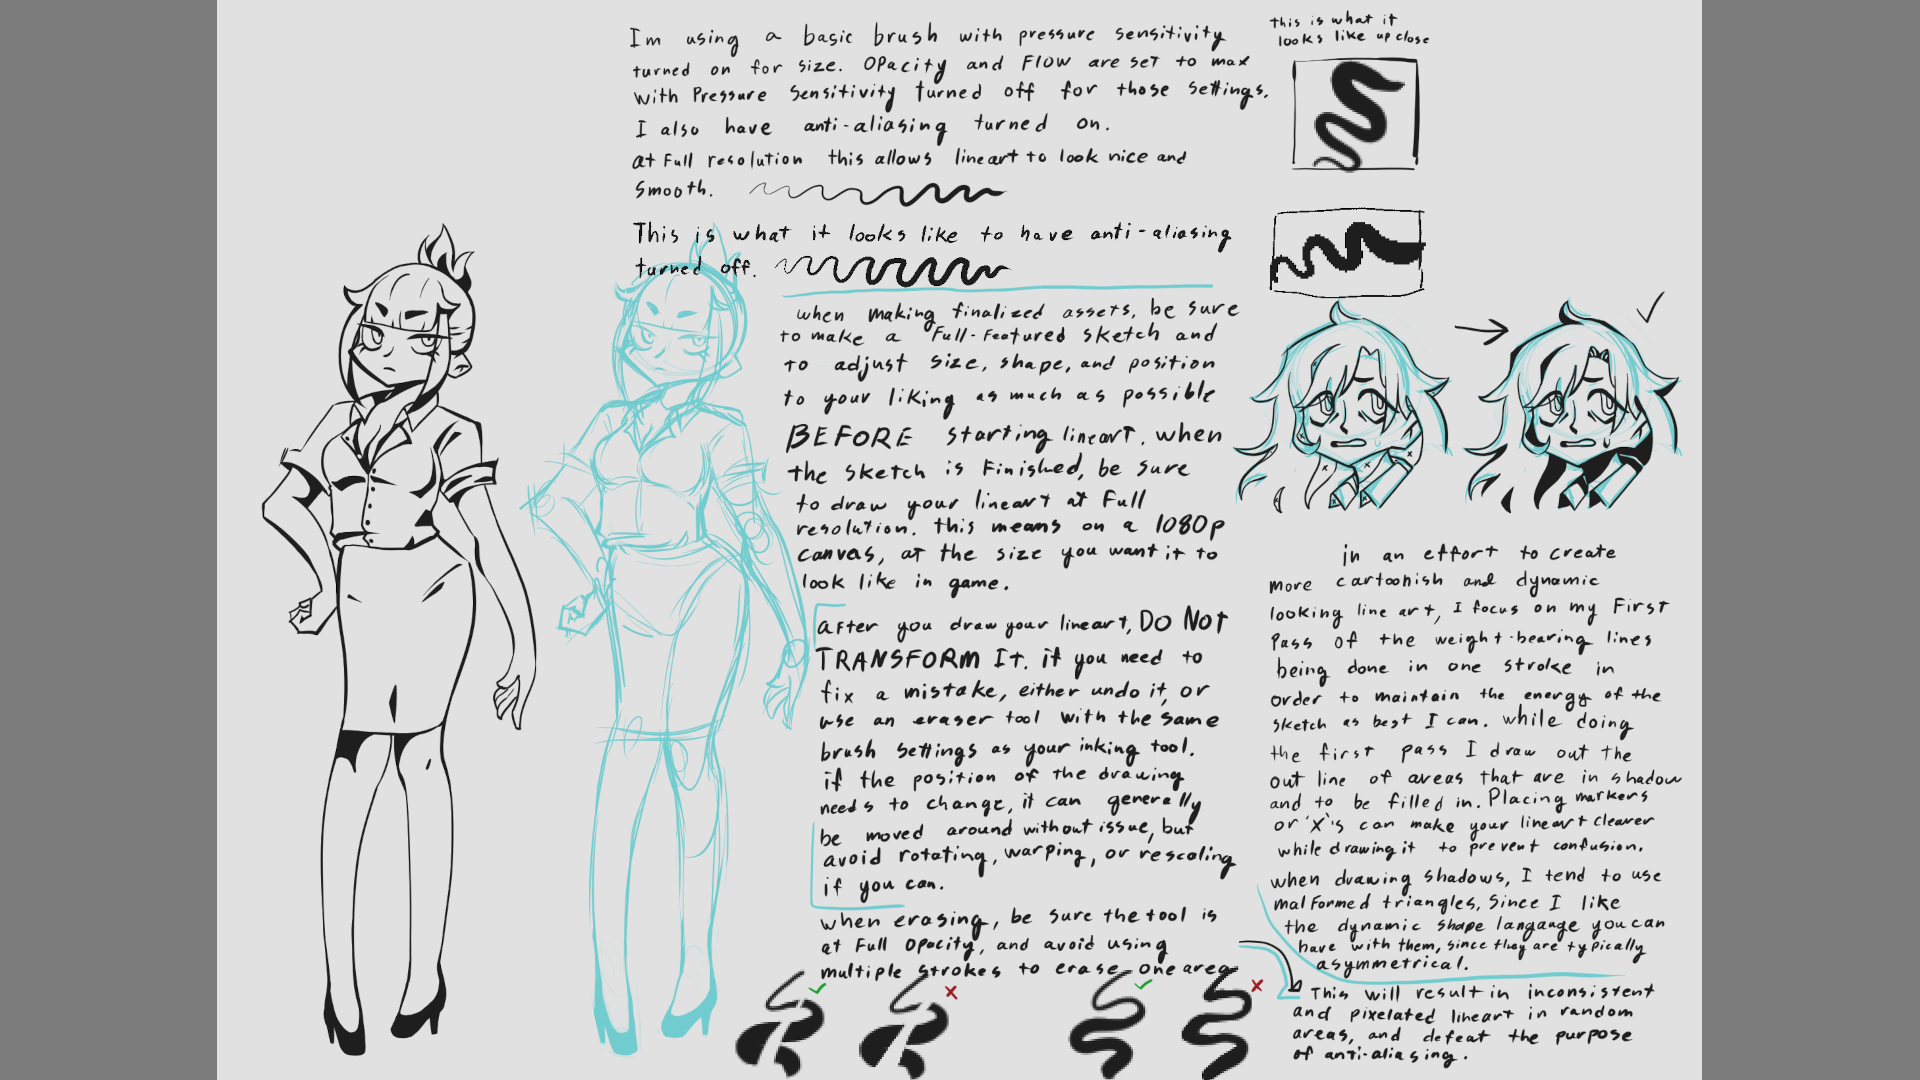 Im using a basic brush with pressure sensitivity
turned on for size. Opacity and Flow are set to max
with Pressure Sensitivity turned off for those settings.
I also have anti-aliasing turned on.
at Full resolution this allows lineart to look nice and
smooth.
This is what it looks like to have anti-aliasing
turned off.
this is what it
looks like up close
when making finalized assets, be sure
to make a Full-Featured sketch and
to adjust size, shape, and position
to your liking as much as possible
BEFORE starting lineart. when
the sketch is Finished, be sure
to draw your lineart at Full
resolution. this means on a 1080p
canvas, at the size you want it to
look like in game.
after you draw your lineart, DO NOT
TRANSFORM It. if you need to
fix a mistake, either undo it, or
use an eraser tool with the same
brush settings as your inking tool.
if the position of the drawing
needs to change, it can generally
be moved around without issue, but
avoid rotating, warping, or rescaling
if you can.
when erasing, be sure the tool is
at Full Opacity, and avoid using
multiple strokes to erase one area
This will result in inconsistent
and pixelated lineart in random
areas, and defeat the purpose
of anti-aliasing.
in an effort to create
more cartoonish and dynamic
looking line art, I focus on my First
Pass of the weight-bearing lines
being done in one stroke in
order to maintain the energy of the
sketch as best I can. while doing
the first pass I draw out the
out line of areas that are in shadow
and to be filled in. Placing markers
or 'X's can make your lineart clearer
while drawing it to prevent confusion.
when drawing shadows, I tend to use
malformed triangles, since I like
the dynamic shape langauge you can
have with them, since they are typically
asymmetrical.